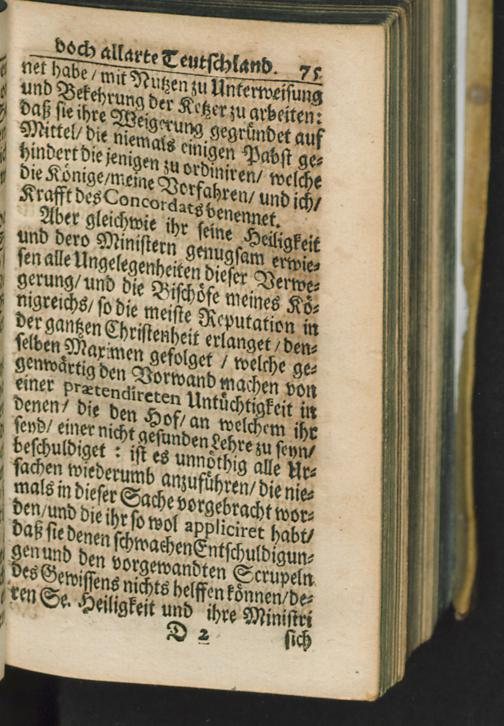 doch allarte Teutschland. 75
net habe / mit Nutzen zu Unterweisung
und Bekehrung der Ketzer zu arbeiten:
daß sie ihre Weigerung gegründet auf
Mittel / die niemals einigen Pabst ge-
hindert die jenigen zu ordiniren / welche
die Könige / meine Vorfahren / und ich /
Krafft des Concordats benennet.
Aber gleichwie ihr seine Heiligkeit
und dero Ministern genugsam erwie-
sen alle Ungelegenheiten dieser Verwe-
gerung / und die Bischöfe meines Kö-
nigreichs / so die meiste Reputation in
der gantzen Christenheit erlanget / den-
selben Maximen gefolget / welche ge-
genwärtig den Vorwand machen von
einer prætendireten Untüchtigkeit in
denen / die den Hof / an welchem ihr
seyd / einer nicht gesunden Lehre zu seyn /
beschuldiget : ist es unnöthig alle Ur-
sachen wiederumb anzuführen / die nie-
mals in dieser Sache vorgebracht wor-
den / und die ihr so wol appliciret habt /
daß sie denen schwachen Entschuldigun-
gen und den vorgewandten Scrupeln
des Gewissens nichts helffen können / de-
ren Se. Heiligkeit und ihre Ministri
D 2 sich